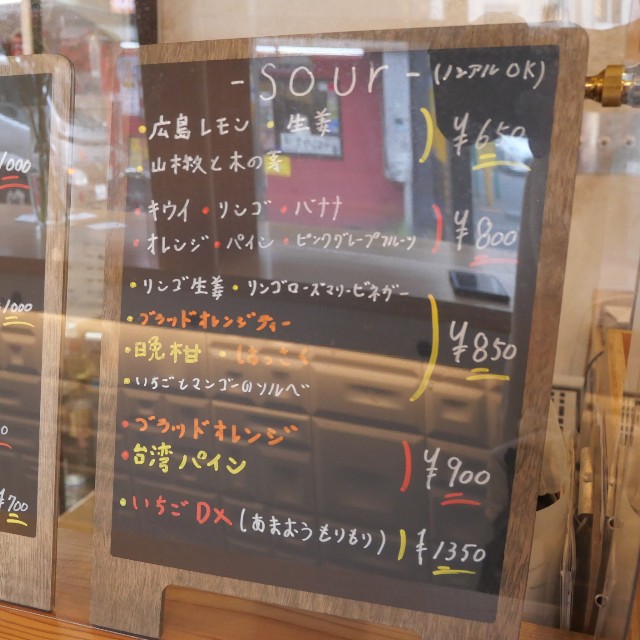 - SOUR - (ノンアル OK)
・広島レモン ・生姜
・山椒と木の芽
¥650
・キウイ・リンゴ・バナナ
・オレンジ・パイン・ピンクグレープフルーツ
¥800
・リンゴ生姜・リンゴローズマリービネガー
・ブラッドオレンジティー
・晩柑 ・はっさく
・いちごとマンゴーのソルベ
¥850
・ブラッドオレンジ
・台湾パイン
¥900
・いちごDX (あまおうもりもり) ¥1350
1000
1000
¥700